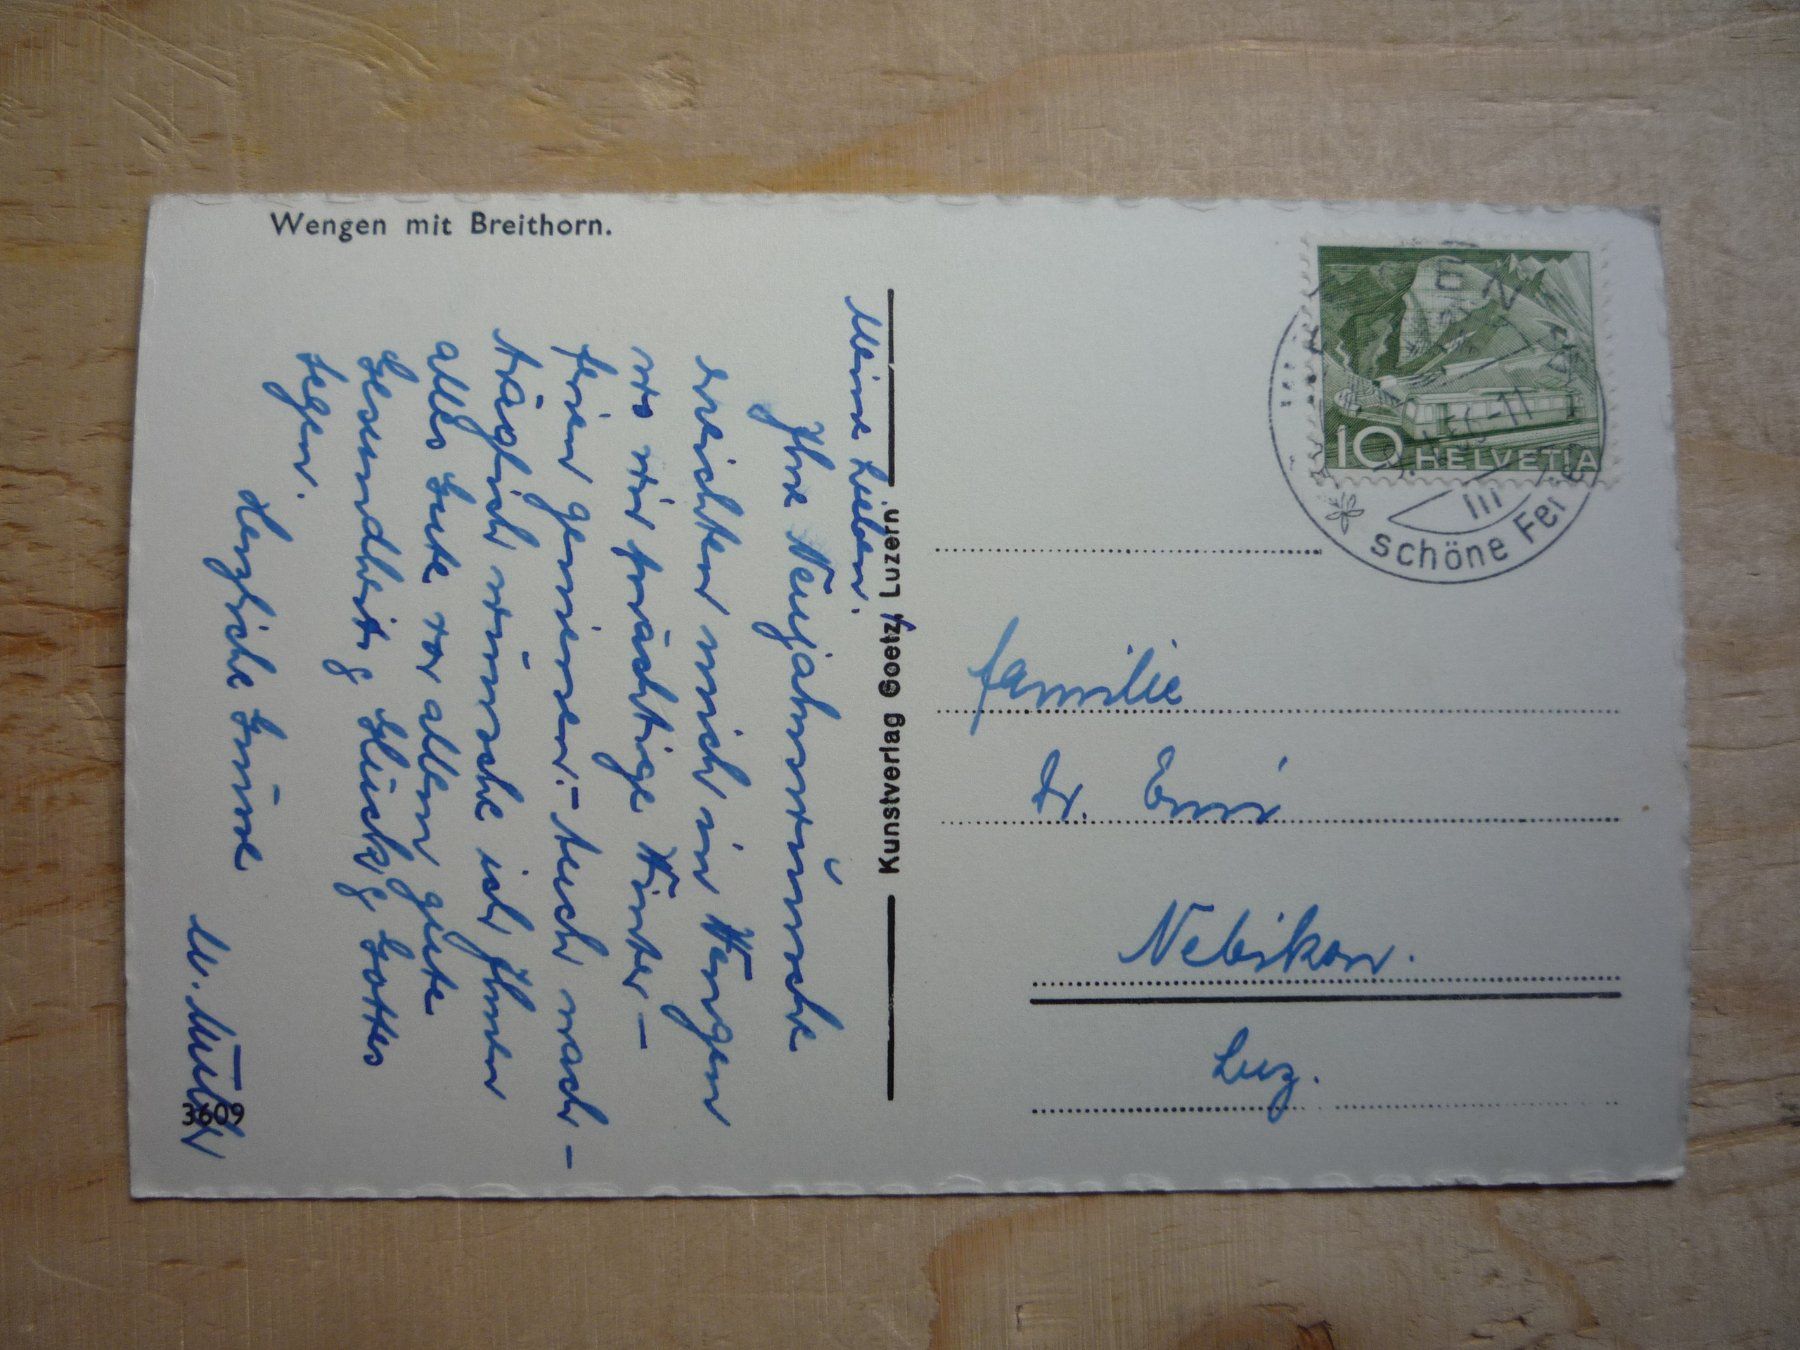 Wengen mit Breithorn.
Meine Lieben.
Ihre Neujahrswünsche
erreichten mich in Wengen
wo wir prächtige Winter-
ferien geniessen. – Auch nach-
träglich wünsche ich Ihnen
alles Gute vor allem gute
Gesundheit, Glück & Gottes
segen.
Herzliche Grüsse
3609
Kunstverlag Goetz, Luzern
10 HELVETIA
schöne Fei
Familie
Dr.
Nebikon.
Luz.